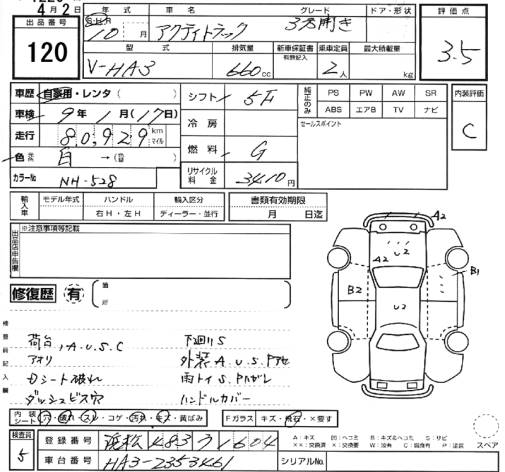 4月2日
出品番号
120
年式
10月
車名
アクティトラック
グレード
3方開き
ドア・形状
評価点
3.5
型式
V-HA3
排気量
660cc
新車保証書
有無記入
乗車定員
2人
最大積載量
kg
車歴 自家用・レンタ
車検 9年1月(17日)
走行 80,929 km マイル
色 白 →( )
カラーNo NH-528
シフト 5F
冷房
燃料 G
リサイクル料金 3410円
純正のみ
PS PW AW SR
ABS エアB TV ナビ
セールスポイント
内装評価
C
輸入車
モデル年式
ハンドル
右H・左H
輸入区分
ディーラー・並行
書類有効期限
月 日迄
出品店申告欄
※注意事項等記載
修復歴 有
A2
U2
A2
B2
B1
U2
検査員記入欄
荷台, A.U.S.C
アオリ
Dシート破れ
ダッシュビス穴
下廻りS
外装A.U.S.Pアセ
雨トイS.Pハガレ
ハンドルカバー
内装シート 穴・破れ・スレ・コゲ・汚れ・キズ・黄ばみ
Fガラス キズ・飛石・×要す
検査員
5
登録番号 浜松483ツ1604
車台番号 HA3-2353461
シリアルNo.
A:キズ
スペア